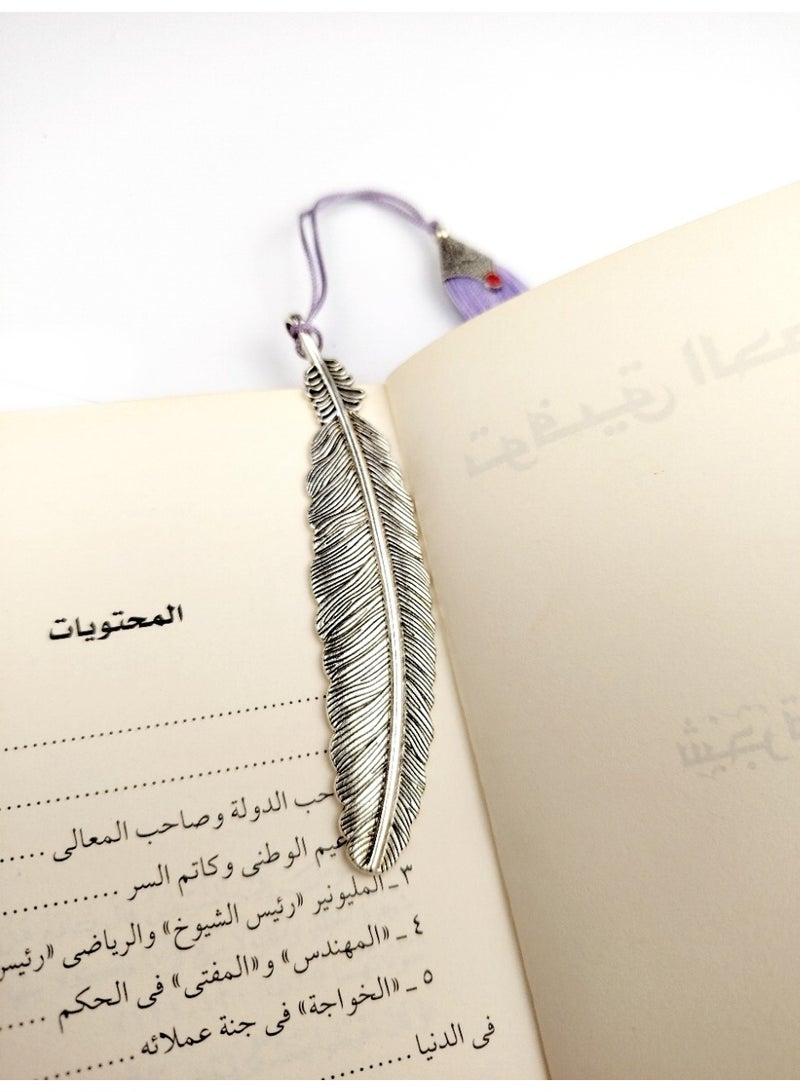 المحتويات
حب الدولة وصاحب المعالى .....
عيم الوطنى وكاتم السر ............
٣ ـ المليونير «رئيس الشيوخ» والرياضى «رئيس
٤ ـ «المهندس» و«المفتى» فى الحكم .....
٥ ـ «الخواجة» فى جنة عملائه ............
فى الدنيا ..........
توفيق الحـ
شجرة